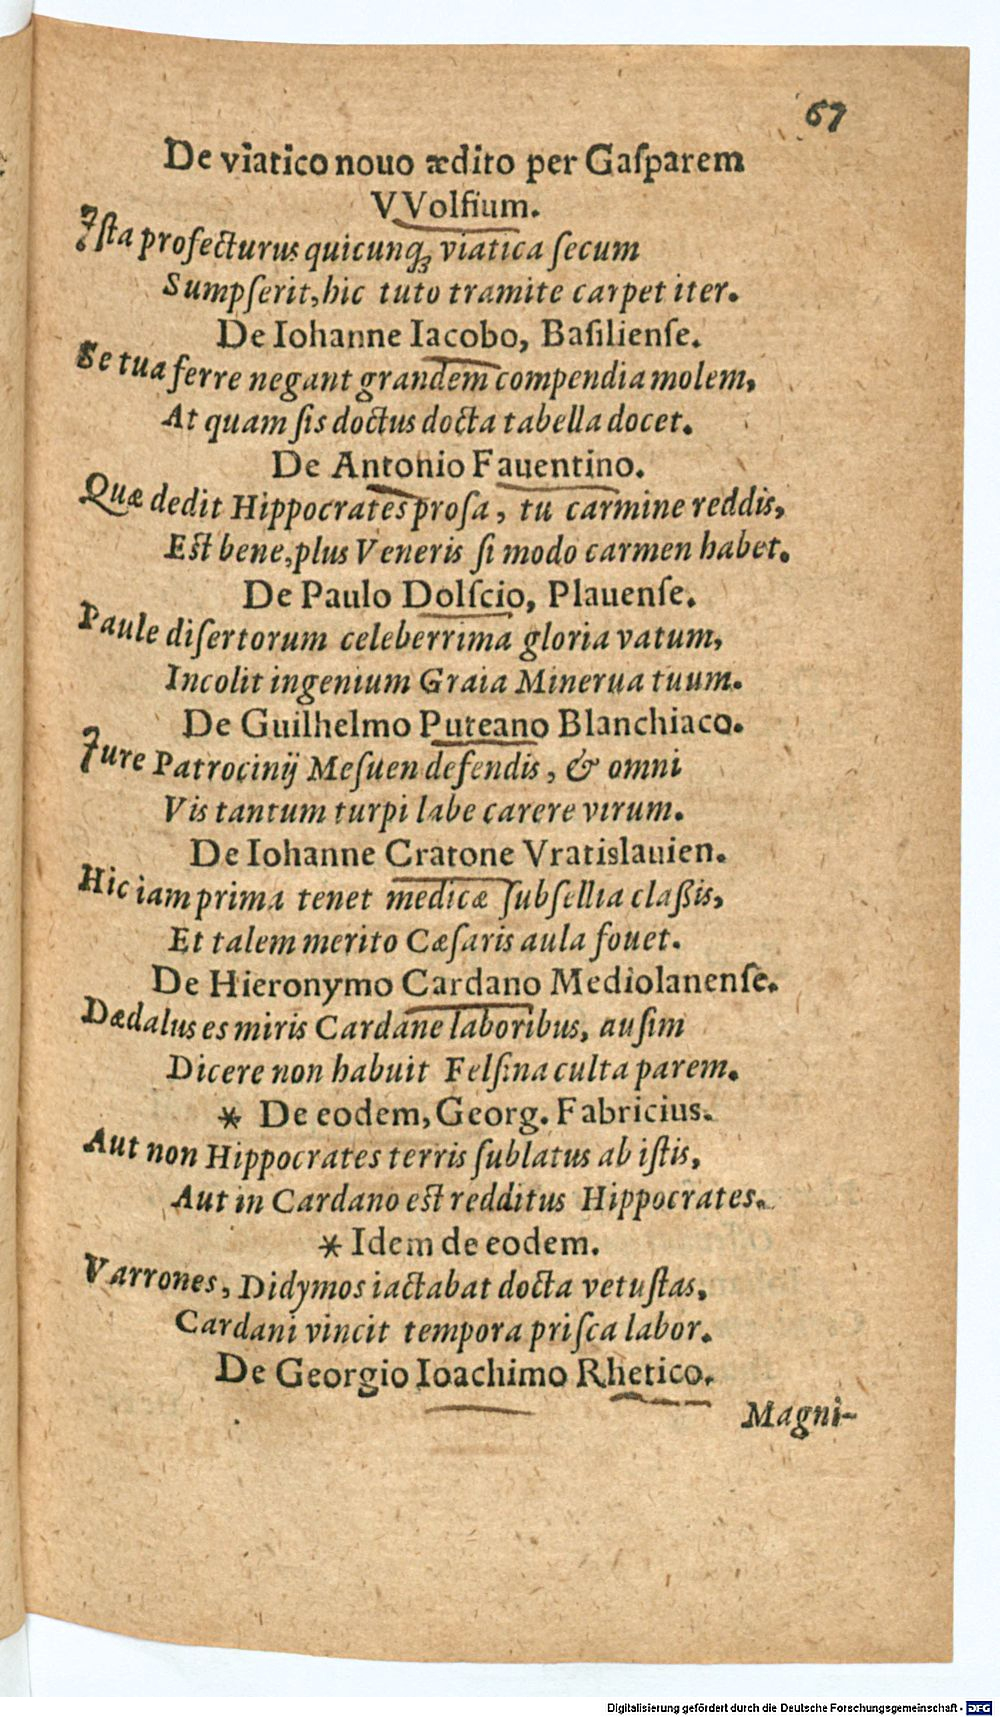 67
De viatico nouo ædito per Gaſparem
VVolfium.
Iſta profecturus quicunq; viatica ſecum
Sumpſerit, hic tuto tramite carpet iter.
De Iohanne Iacobo, Baſilienſe.
Se tua ferre negant grandem compendia molem,
At quam ſis doctus docta tabella docet.
De Antonio Fauentino.
Quæ dedit Hippocrates proſa, tu carmine reddis,
Eſt bene, plus Veneris ſi modo carmen habet.
De Paulo Dolſcio, Plauenſe.
Paule diſertorum celeberrima gloria vatum,
Incolit ingenium Graia Minerua tuum.
De Guilhelmo Puteano Blanchiaco.
Iure Patrocinij Meſuen defendis, & omni
Vis tantum turpi labe carere virum.
De Iohanne Cratone Vratislauien.
Hic iam prima tenet medicæ ſubſellia claßis,
Et talem merito Cæſaris aula fouet.
De Hieronymo Cardano Mediolanenſe.
Dædalus es miris Cardane laboribus, auſim
Dicere non habuit Felſina culta parem.
* De eodem, Georg. Fabricius.
Aut non Hippocrates terris ſublatus ab iſtis,
Aut in Cardano eſt redditus Hippocrates.
* Idem de eodem.
Varrones, Didymos iactabat docta vetuſtas,
Cardani vincit tempora priſca labor.
De Georgio Ioachimo Rhetico.
Magni-
Digitalisierung gefördert durch die Deutsche Forschungsgemeinschaft - DFG